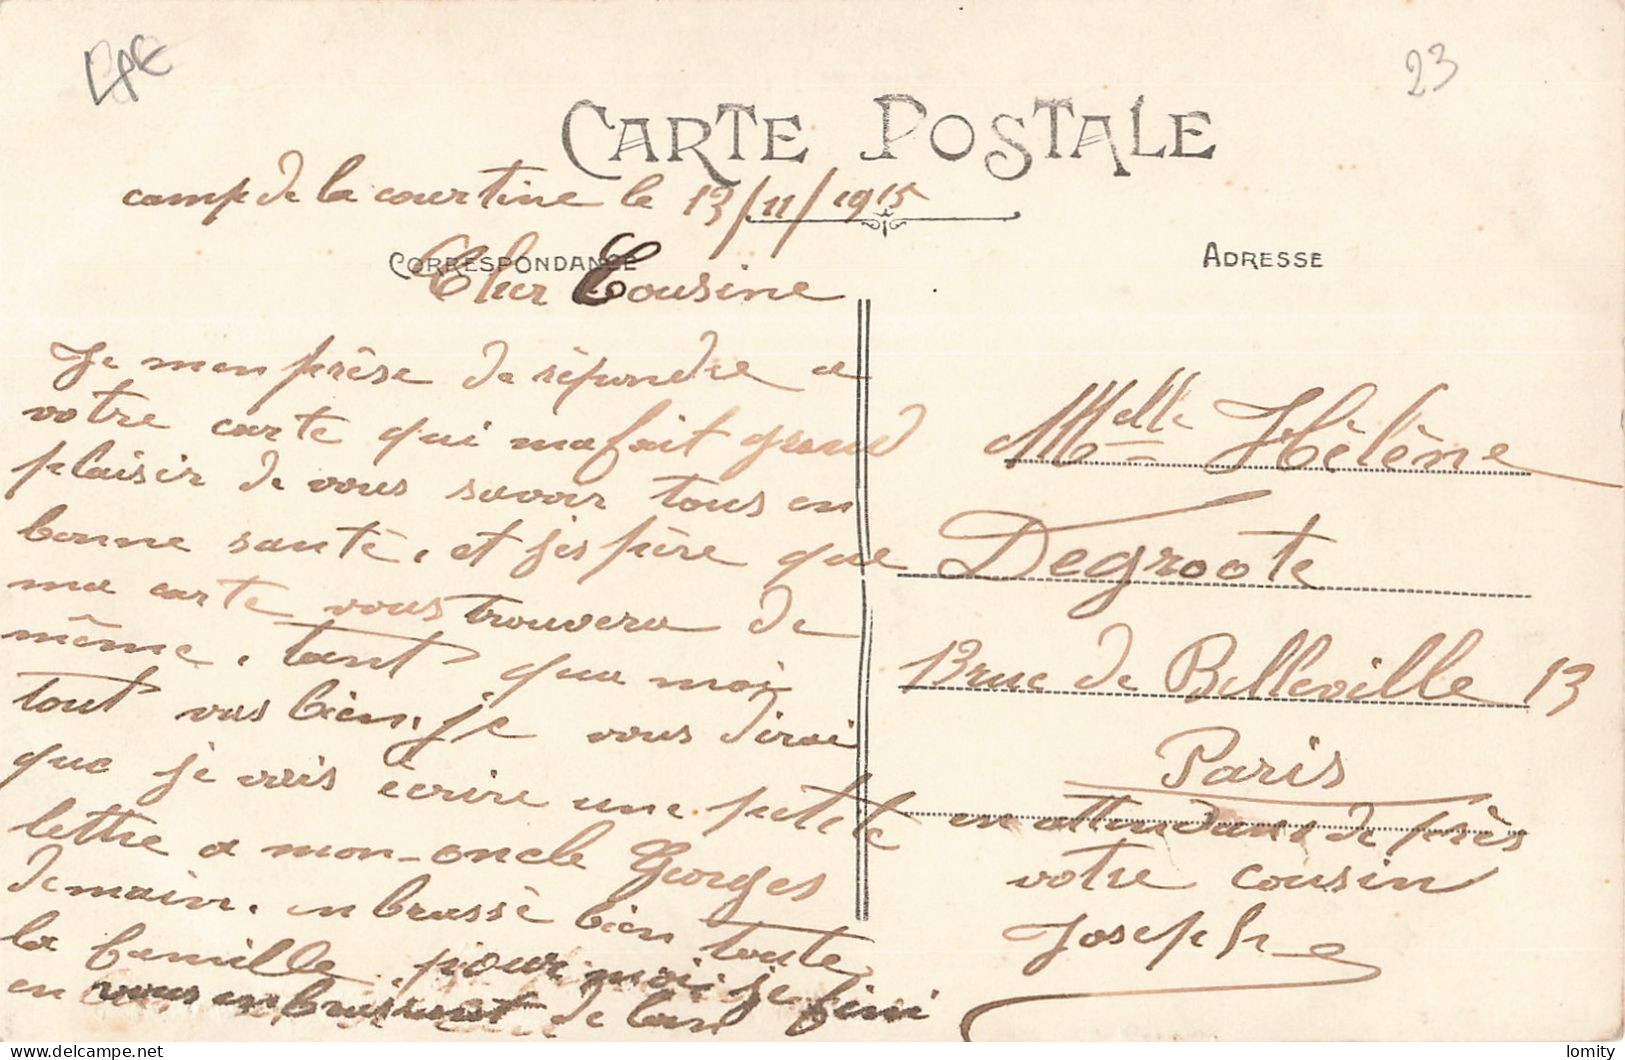 23
CARTE POSTALE
camp de la courtine le 13/11/1915
CORRESPONDANCE
ADRESSE
Cher Cousine
Je men prèse de répondre a
votre carte qui ma fait grand
plaisir de vous savoir tous en
bonne santé, et jespère que
ma carte vous trouvera de
même, tant que moi
tout vas bien, je vous dirai
que je vais écrire une petite
lettre a mon-oncle Georges
demain, enbrassè bien toute
la famille pour moi, je fini
en vous enbrassent de loin
Melle Hèlène
Degroote
13 rue de Belleville 13
Paris
en attendans de près
votre cousin
Joseph
delcampe.net
lomity